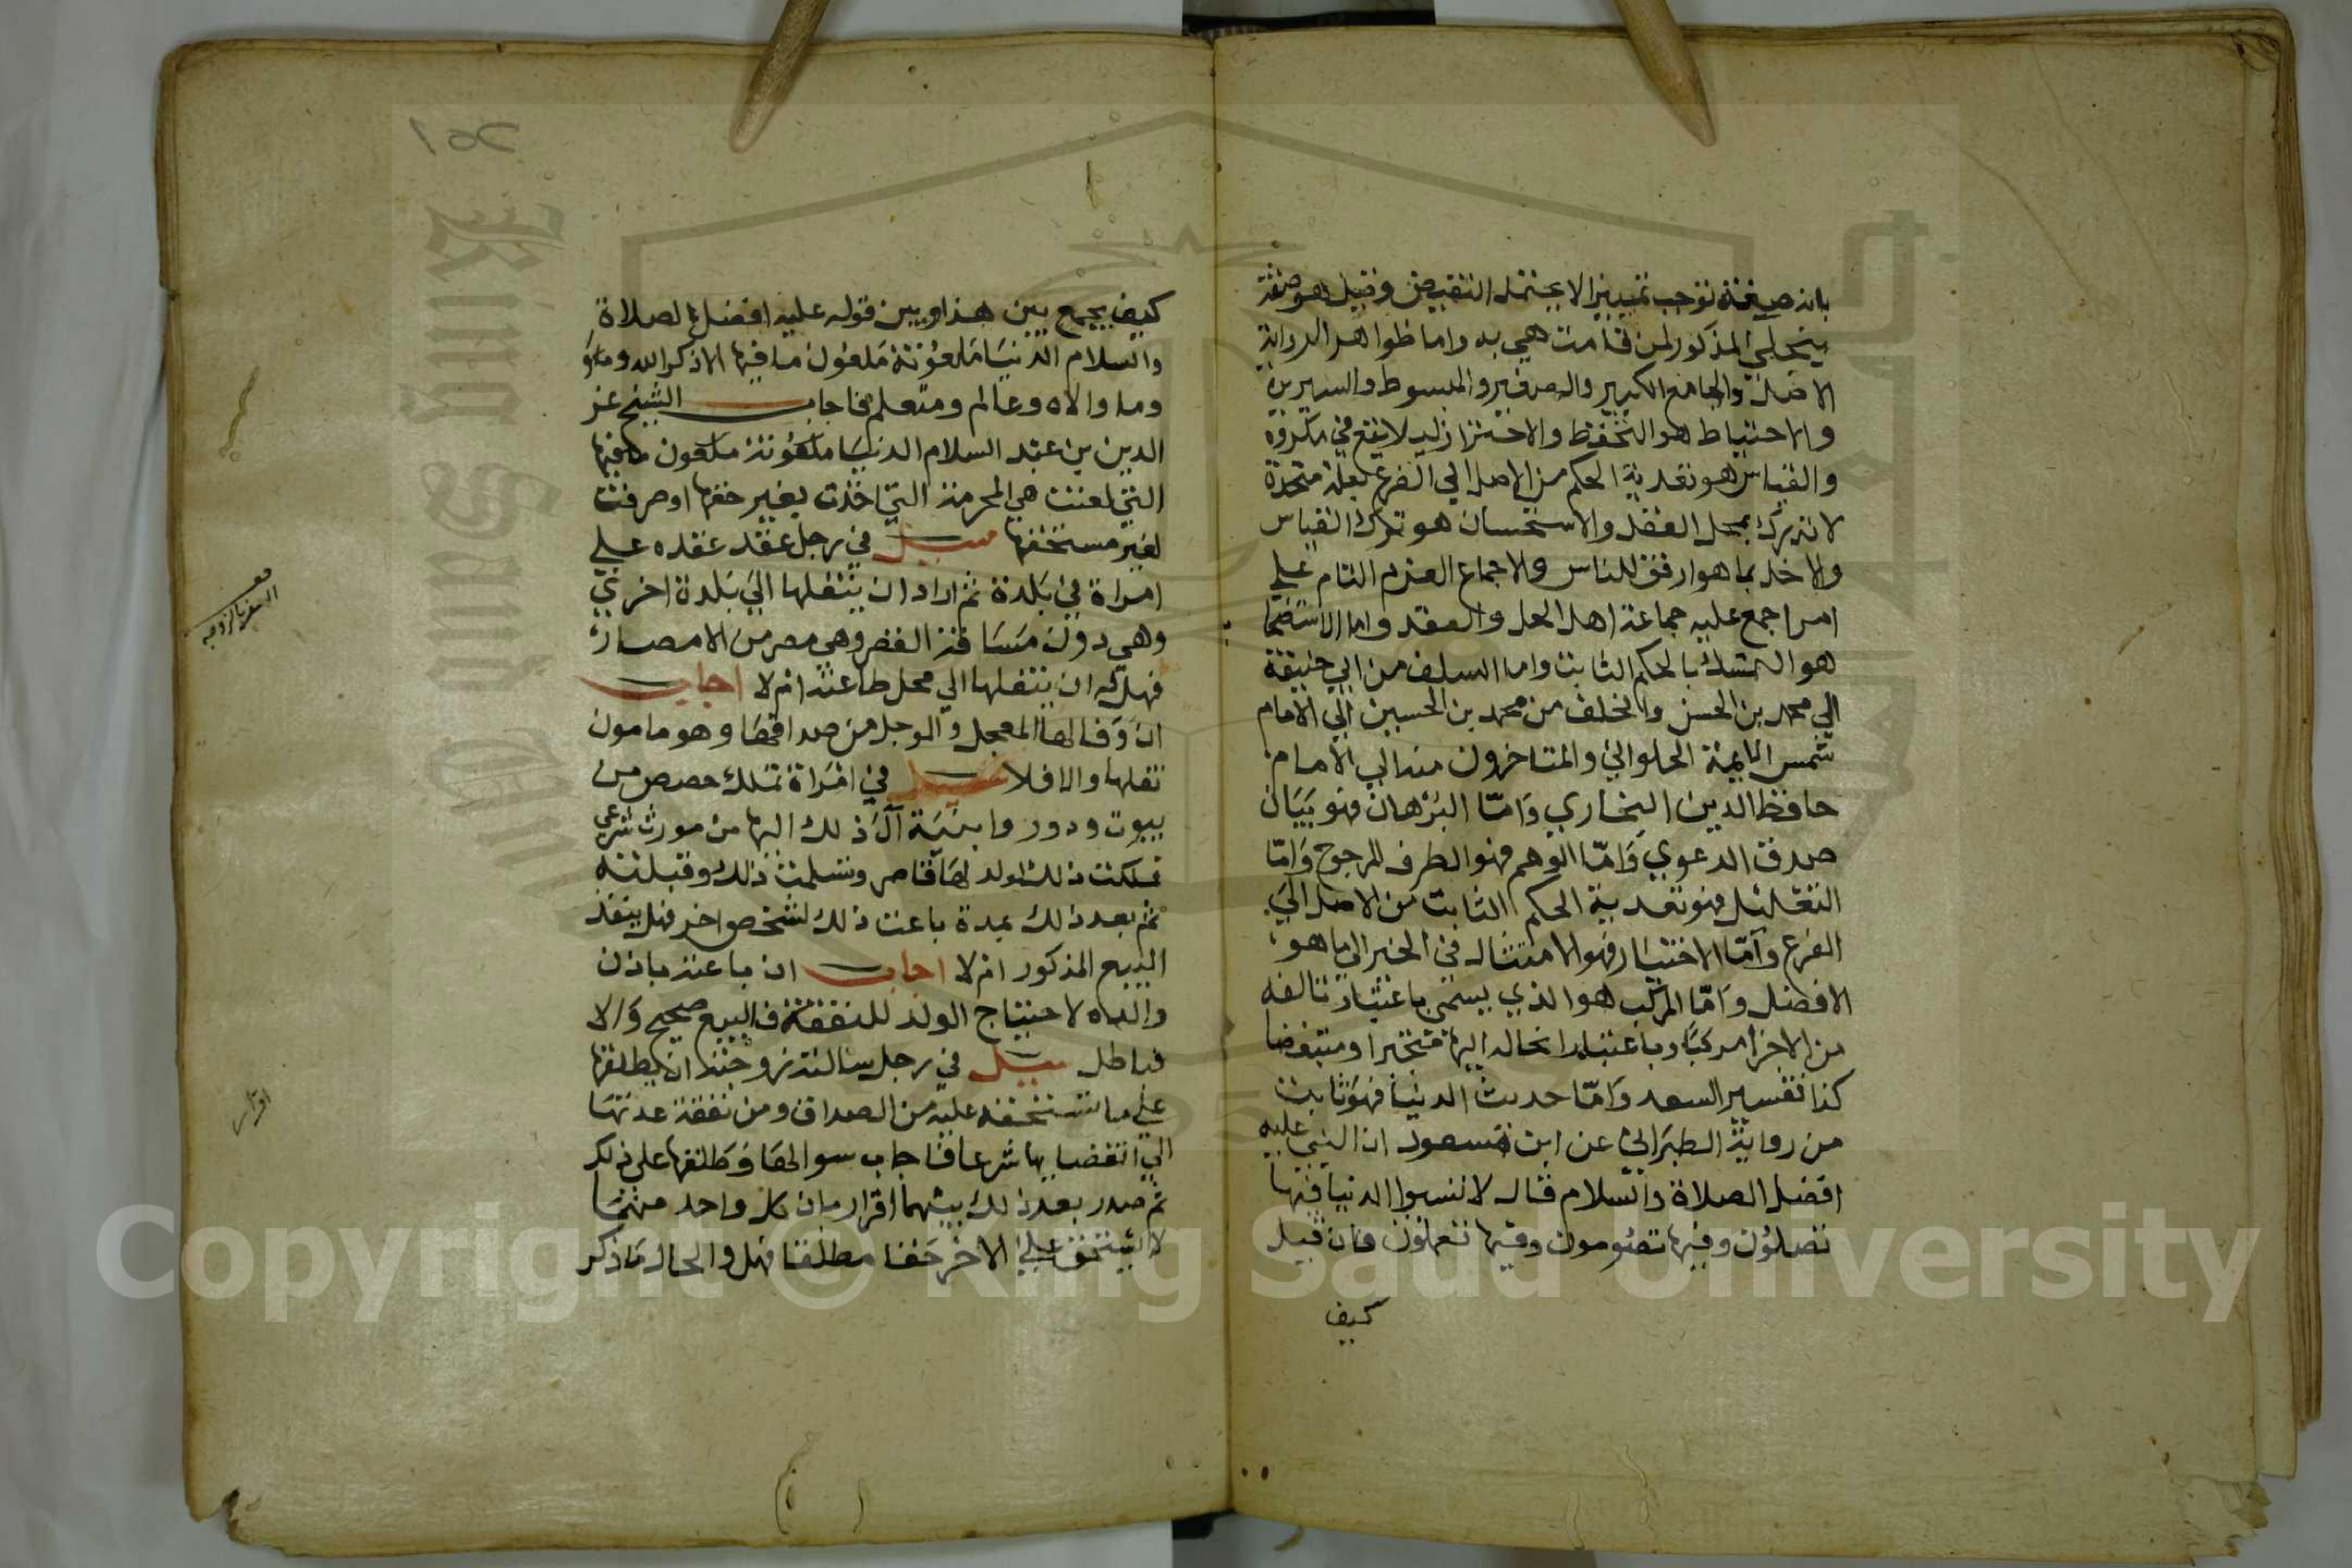 بانه صفة توجب تمييزا لا يحتمل النقيض وقيل هو صفة
يتجلى المذكور لمن قامت هي به واما ظواهر الرواية
الاصل والجامع الكبير والصغير والمبسوط والسيرين
والاحتياط هو التحفظ والاحتراز ليلا يقع في مكروه
والقياس هو تعدية الحكم من الاصل الي الفرع بعلة متحدة
لا تدرك بمحل العقل والاستحسان هو ترك القياس
والاخذ بما هو ارفق للناس والاجماع العزم التام علي
امر اجمع عليه جماعة اهل الحل والعقد واما الاستصحا
هو التمسك بالحكم الثابت واما السلف من ابي حنيفة
الي محمد بن الحسن والخلف من محمد بن الحسين الي الامام
شمس الايمة الحلواني والمتاخرون منه الي الامام
حافظ الدين البخاري وامّا البرهان فهو بيان
صدق الدعوي وامّا الوهم فهو الطرف المرجوح وامّا
التعليل فهو تعدية الحكم الثابت من الاصل الي
الفرع وامّا الاختيار فهو الامتثال في الخبر الي ما هو
الافضل وامّا المركب هو الذي يسمي باعتبار تالفه
من الاجزا مركبا وباعتبار انحاله اليها متجزا ومتبعضا
كذا تفسير السعد وامّا حديث الدنيا فهو ثابت
من رواية الطبراني عن ابن مسعود ان النبي عليه
افضل الصلاة والسلام قال لا تسبوا الدنيا فيها
تصلون وفيها تصومون وفيها تعملون فان قيل
كيف
١٥٢
كيف يجمع بين هذا وبين قوله عليه افضل الصلاة
والسلام الدنيا ملعونة ملعون ما فيها الا ذكر الله
وما والاه وعالم ومتعلم فاجاب الشيخ عز
الدين بن عبد السلام الدنيا ملعونة ملعون ما فيها
التي لعنت هي المحرمة التي اخذت بغير حقها او صرفت
لغير مستحقها سيل في رجل عقد عقده علي
امراة في بلدة ثم اراد ان ينقلها الي بلدة اخري
وهي دون مسافة القصر وهي مصر من الامصار
فهل له ان ينقلها الي محل طاعته ام لا اجاب
ان وفا لها المعجل والموجل من صداقها وهو مامون
نقلها والا فلا سيل في امراة تملك حصص من
بيوت ودور وابنية آل ذلك اليها من مورث شرعي
فملكت ذلك لولد لها قاصر وتسلمت ذلك وقبلته
ثم بعد ذلك بمدة باعت ذلك لشخص اخر فهل ينفذ
البيع المذكور ام لا اجاب ان باعته باذن
والداه لاحتياج الولد للنفقة فالبيع صحيح والا
فباطل سيل في رجل سالته زوجته ان يطلقها
علي ما تستحقه عليه من الصداق ومن نفقة عدتها
الي انقضايها شرعا فاجاب سوالها وطلقها على ذلك
ثم صدر بعد ذلك بينهما اقرار بان كل واحد منهما
لا يستحق علي الاخر حقا مطلقا فهل والحال ما ذكر
السفر بالزوجه
اقرار
Copyright © King Saud University
King Saud University